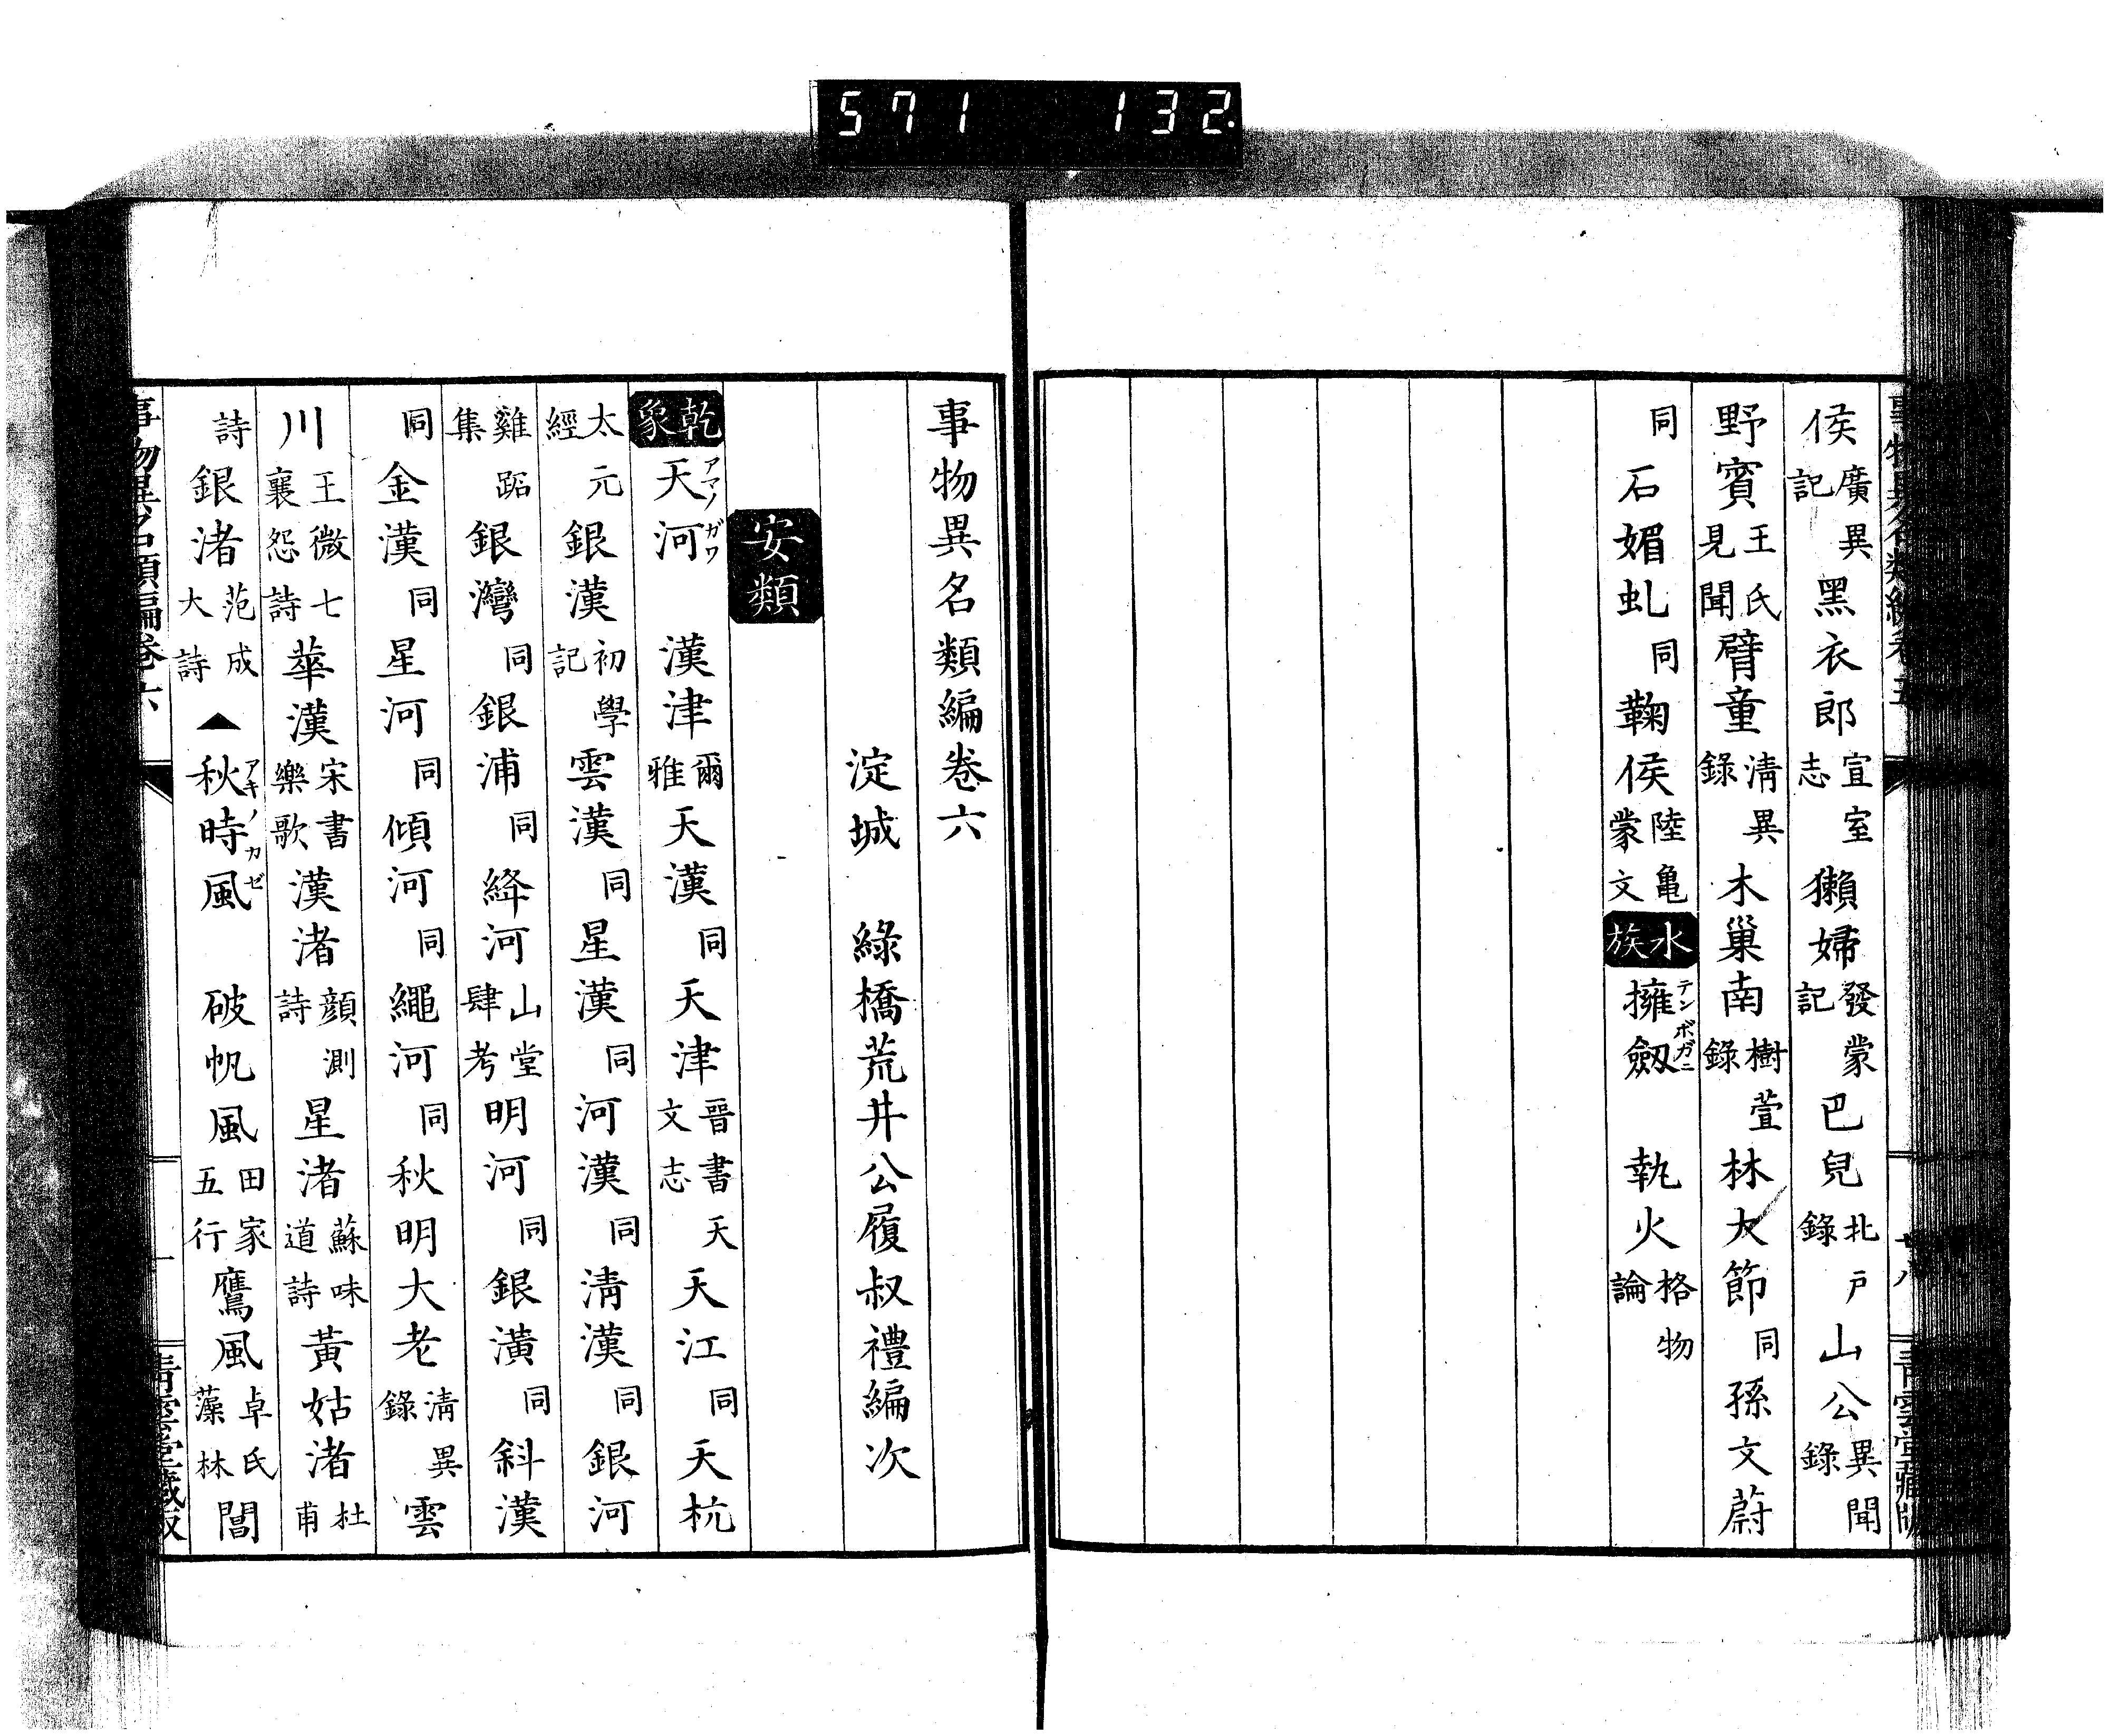 571 132
侯廣異記黑衣郎宣室志獺婦發蒙記巴兒北戸錄山公異聞錄
野賓王氏見聞臂童淸異錄木巢南樹萱錄林大節同孫文蔚
同石媚虬同鞠侯陸龜蒙文水族擁劔テンボガニ執火格物論
事物異名類編卷六
淀城 綠橋荒井公履叔禮編次
安類
乾象天河アマノガワ漢津爾雅天漢同天津晉書天文志天江同天杭
太元經銀漢初學記雲漢同星漢同河漢同淸漢同銀河
雞跖集銀灣同銀浦同絳河山堂肆考明河同銀潢同斜漢
同金漢同星河同傾河同繩河同秋明大老淸異錄雲
川王微七襄怨詩華漢宋書樂歌漢渚顔測詩星渚蘇味道詩黃姑渚杜甫
詩銀渚范成大詩▲秋時風アキノカゼ破帆風田家五行鷹風卓氏藻林閶
事物異名類編卷六 一 青雲堂藏版